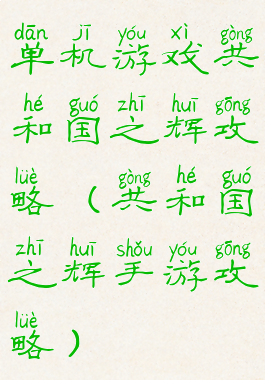 dān jī yóu xì gòng
单机游戏共
hé guó zhī huī gōng
和国之辉攻
lüè gòng hé guó
略（共和国
zhī huī shǒu yóu gōng
之辉手游攻
lüè
略）